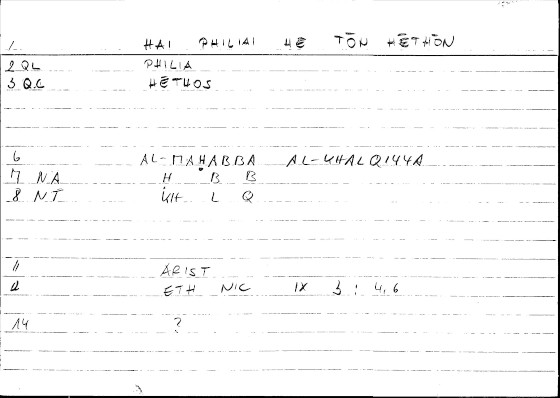 1 HAI PHILIAI HE TŌN HĒTHŌN
2 QL PHILIA
3 QC HĒTHOS
6 AL-MAḤABBA AL-KHALQIYYA
7 NA H B B
8 NT KH L Q
11 ARIST
12 ETH NIC IX 3 : 4,6
14 ?